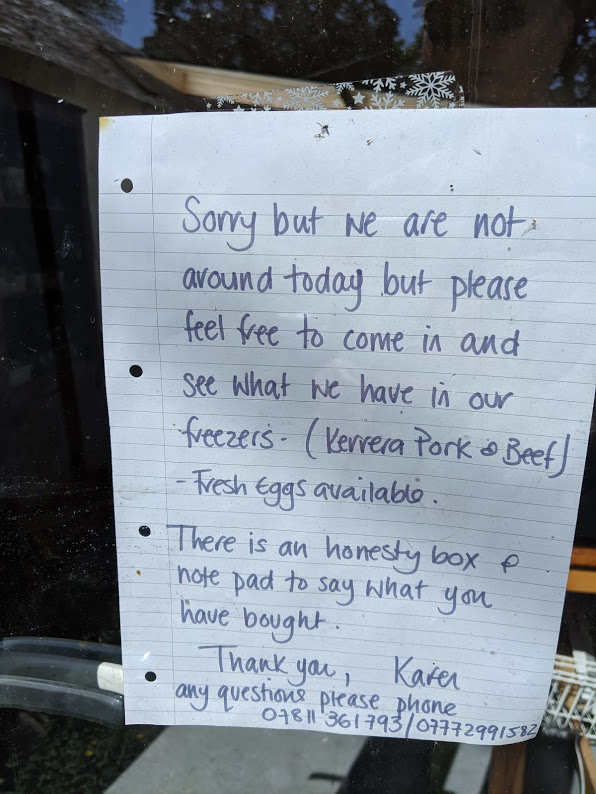 Sorry but we are not
around today but please
feel free to come in and
see what we have in our
freezers - (Kerrera Pork & Beef)
- Fresh Eggs available.
There is an honesty box &
note pad to say what you
have bought.
Thank you, Karen
any questions please phone
07811 361793/07772991582